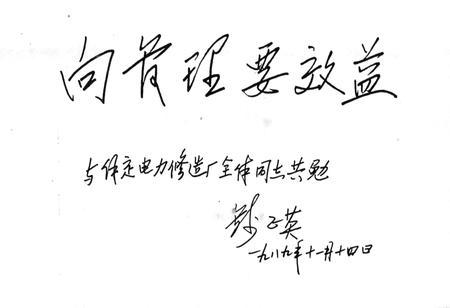 向管理要效益
与保定电力修造厂全体同志共勉
钱正英
一九八九年十一月十四日